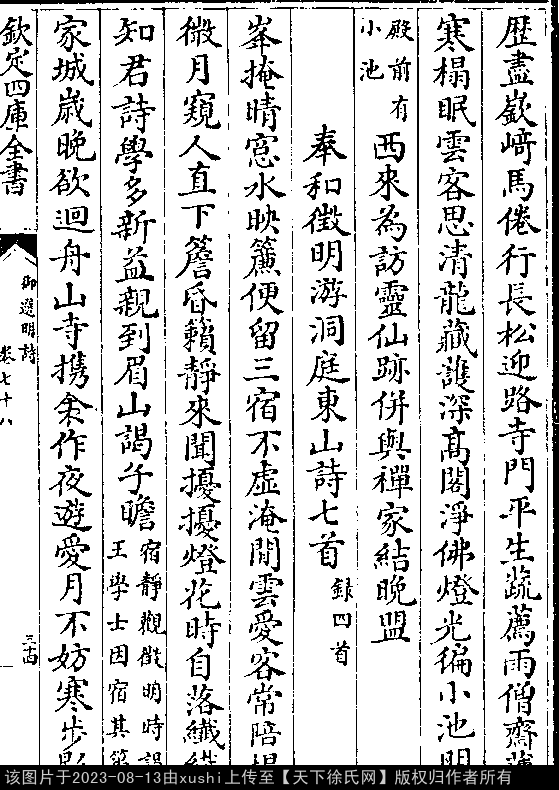 歴盡嶔﨑馬倦行長松迎路寺門平生蔬薦雨僧齋
寒榻眠雲客思清龍藏護深髙閣淨佛燈光徧小池明
殿前有
小池
西來為訪靈仙跡併與禪家結晚盟
奉和徵明游洞庭東山詩七首
録四首
峯掩晴窓水映簾便留三宿不虛淹閒雲愛客常陪榻
微月窺人直下簷昏籟靜來聞擾擾燈花時自落纖纖
知君詩學多新益親到眉山謁子瞻
宿靜觀徵明時謁
王學士因宿其第
家城嵗晚欲迴舟山寺携衾作夜遊愛月不妨寒歩影
欽定四庫全書
御選明詩
卷七十八
三十四
该图片于2023-08-13由xushi上传至【天下徐氏网】版权归作者所有